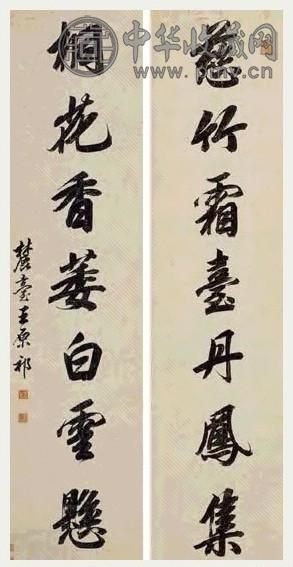 中华收藏网
慈竹霜臺丹鳳集
花香萎白雲懸
麓臺王原祁